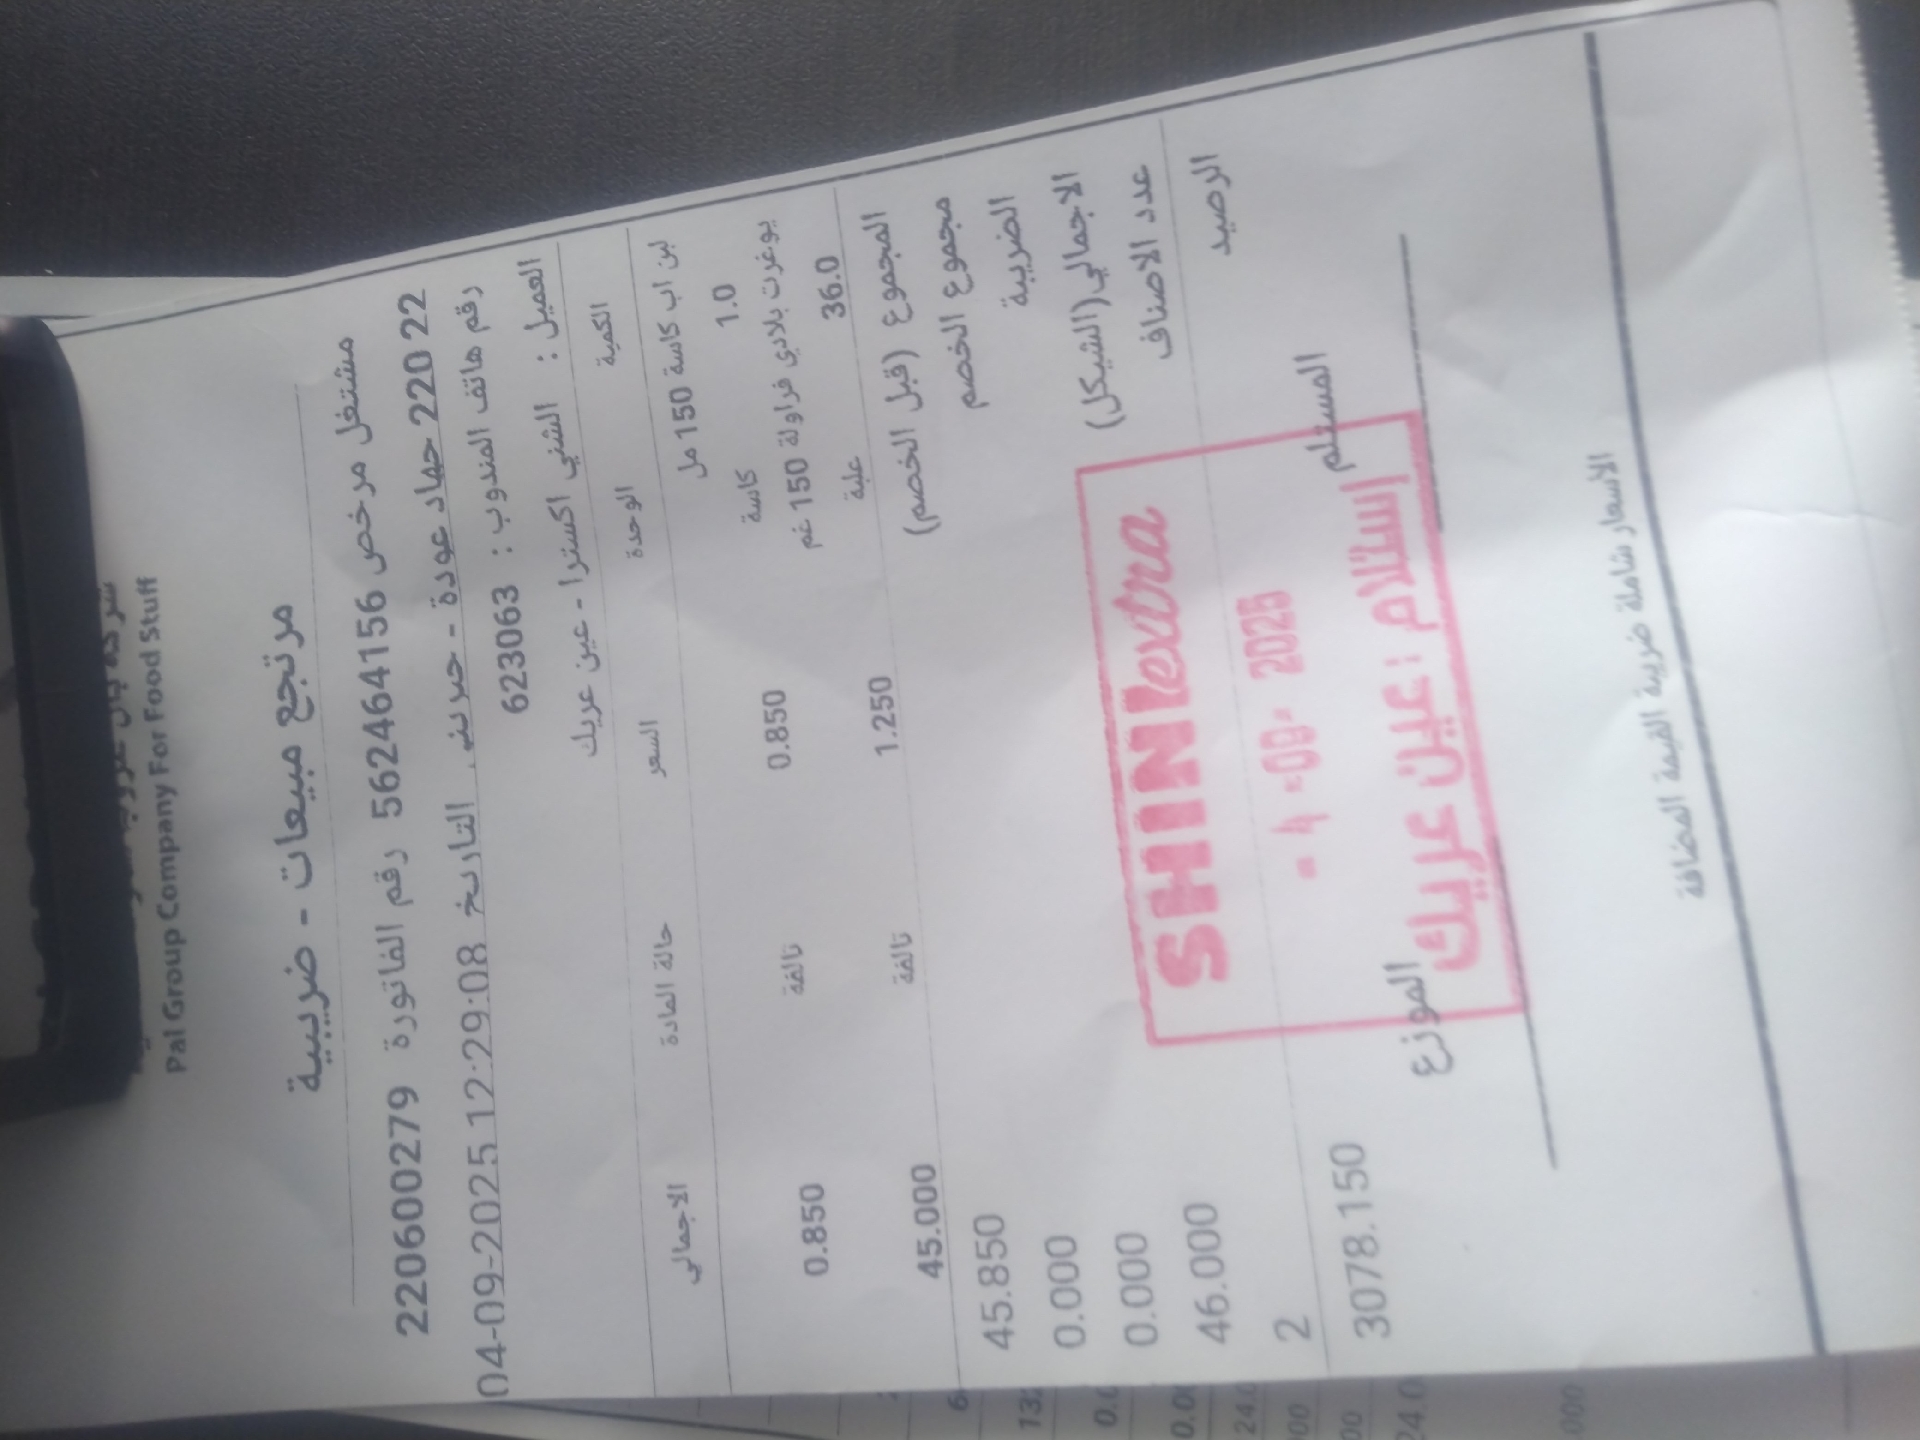 Pal Group Company For Food Stuff
مرتجع مبيعات - ضريبية
مشتغل مرخص 562464156 رقم الفاتورة 220600279
22 220 جهاد عودة - التاريخ 04-09-2025 12:29:08
رقم هاتف المندوب : 6223063
العميل : الشني اكسترا - عين عريك
الكمية الوحدة السعر حالة المادة الاجمالي
لبن اب كاسة 150 مل
1.0 كاسة 0.850 تالفة 0.850
يوغرت بلادي فراولة 150 غم
36.0 علبة 1.250 تالفة 45.000
المجموع (قبل الخصم) 45.850
مجموع الخصم 0.000
الضريبة 0.000
الاجمالي(الشيكل) 46.000
عدد الاصناف 2
الرصيد 3078.150
المستلم الموزع
SHINIextra
- 4 -09- 2025
إستلام : عين عريك
الاسعار شاملة ضريبة القيمة المضافة
132
24.0